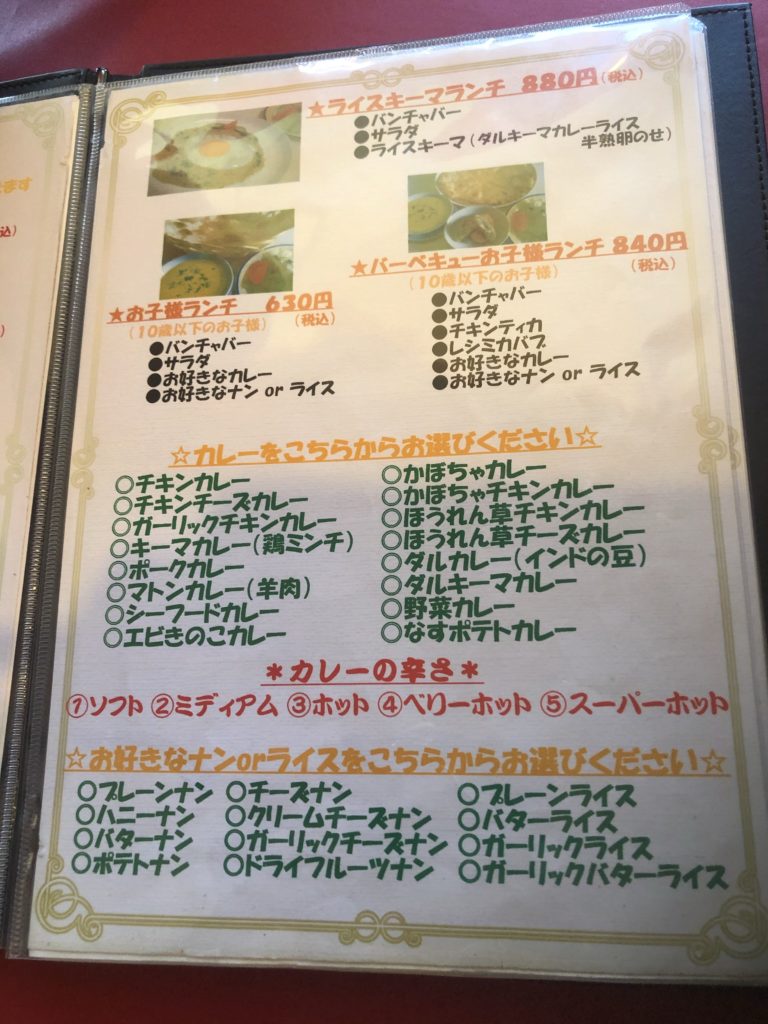 ★ライスキーマランチ 880円(税込)
●バンチャバー
●サラダ
●ライスキーマ(ダルキーマカレーライス
半熟卵のせ)
★お子様ランチ 630円
(10歳以下のお子様) (税込)
●バンチャバー
●サラダ
●お好きなカレー
●お好きなナン or ライス
★バーベキューお子様ランチ 840円
(10歳以下のお子様) (税込)
●バンチャバー
●サラダ
●チキンティカ
●レシミカバブ
●お好きなカレー
●お好きなナン or ライス
☆カレーをこちらからお選びください☆
○チキンカレー
○チキンチーズカレー
○ガーリックチキンカレー
○キーマカレー(鶏ミンチ)
○ポークカレー
○マトンカレー(羊肉)
○シーフードカレー
○エビきのこカレー
○かぼちゃカレー
○かぼちゃチキンカレー
○ほうれん草チキンカレー
○ほうれん草チーズカレー
○ダルカレー(インドの豆)
○ダルキーマカレー
○野菜カレー
○なすポテトカレー
*カレーの辛さ*
①ソフト ②ミディアム ③ホット ④ベリーホット ⑤スーパーホット
☆お好きなナンorライスをこちらからお選びください☆
○プレーンナン
○ハニーナン
○バターナン
○ポテトナン
○チーズナン
○クリームチーズナン
○ガーリックチーズナン
○ドライフルーツナン
○プレーンライス
○バターライス
○ガーリックライス
○ガーリックバターライス
ます
込)